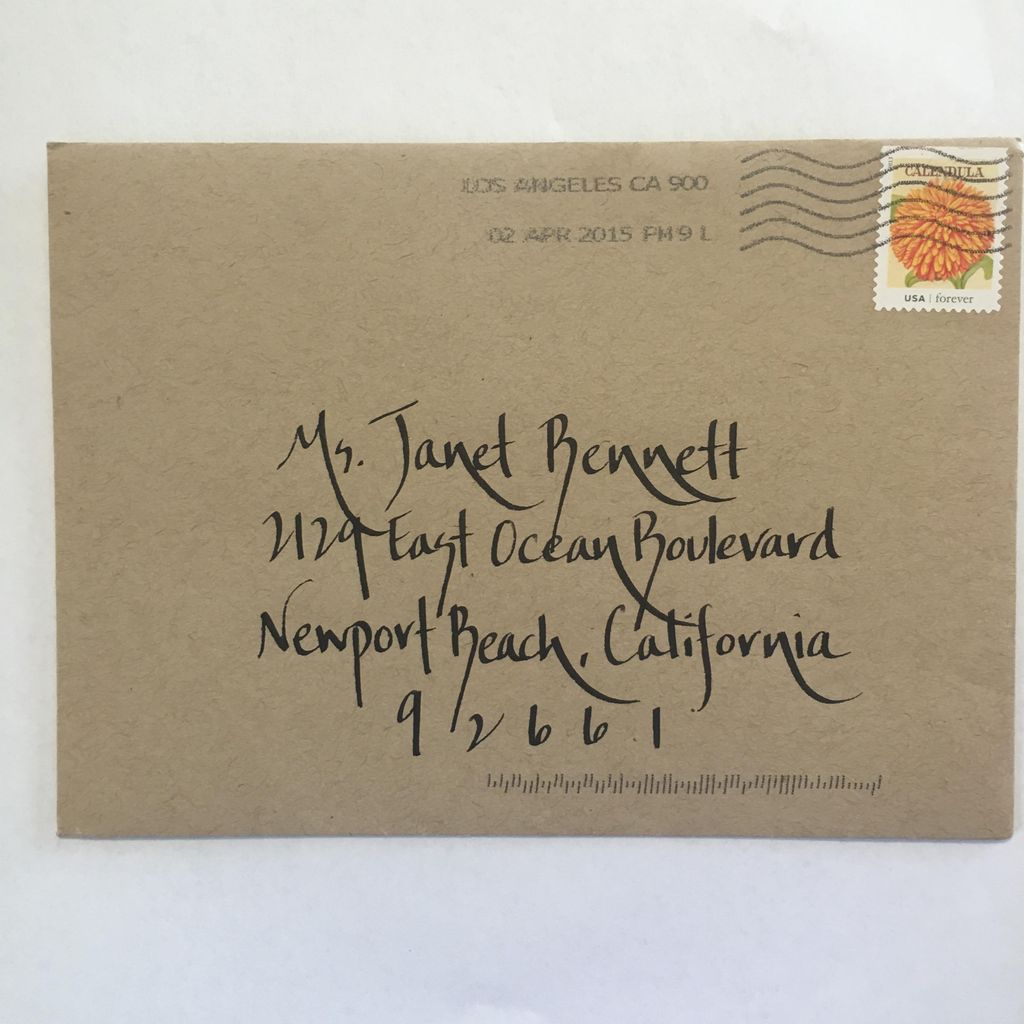 LOS ANGELES CA 900
02 APR 2015 PM 9 L
CALENDULA
USA | forever
Ms. Janet Bennett
2129 East Ocean Boulevard
Newport Beach, California
92661